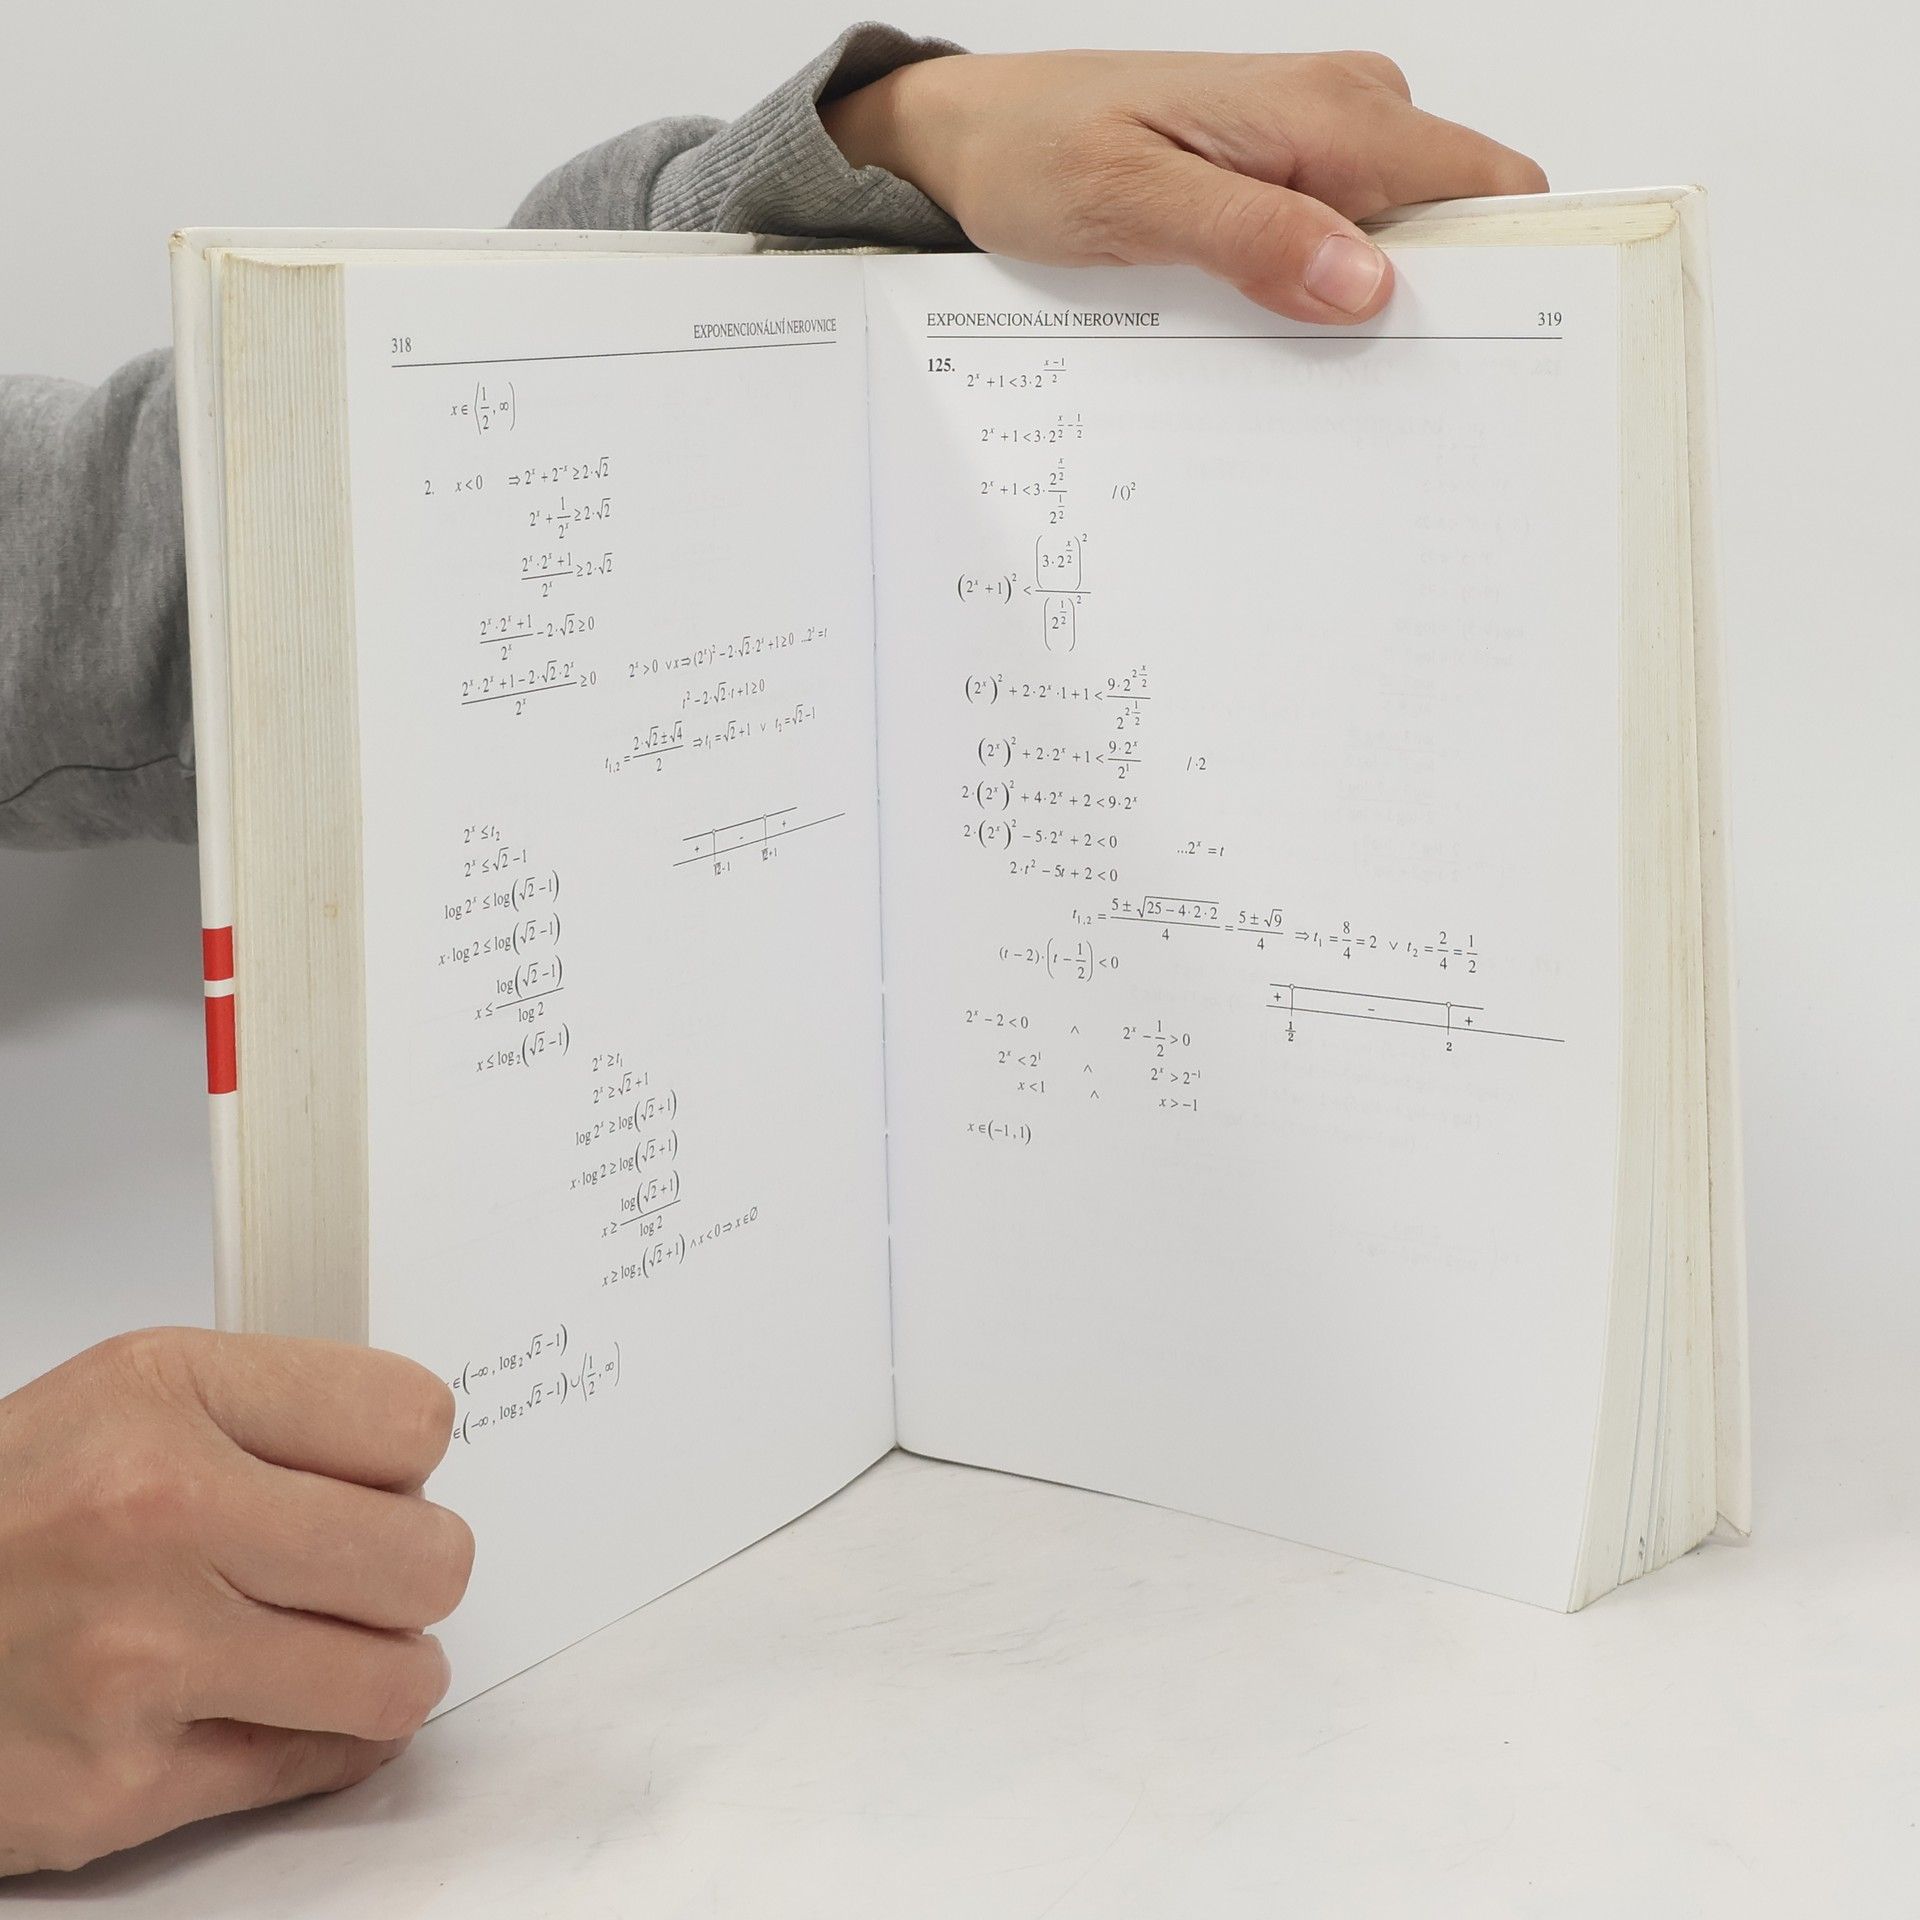 318 EXPONENCIONÁLNÍ NEROVNICE
x ∈ ⟨1/2, ∞)
2. x < 0 ⇒ 2^x + 2^-x ≥ 2·√2
2^x + 1/2^x ≥ 2·√2
(2^x · 2^x + 1)/2^x ≥ 2·√2
(2^x · 2^x + 1)/2^x − 2·√2 ≥ 0
(2^x · 2^x + 1 − 2·√2·2^x)/2^x ≥ 0 2^x > 0 ∨ x ⇒ (2^x)^2 − 2·√2·2^x + 1 ≥ 0 ...2^x = t
t^2 − 2·√2·t + 1 ≥ 0
t_1,2 = (2·√2 ± √4)/2 ⇒ t_1 = √2 + 1 ∨ t_2 = √2 − 1
+ - +
√2-1 √2+1
2^x ≤ t_2
2^x ≤ √2 − 1
log 2^x ≤ log(√2 − 1)
x · log 2 ≤ log(√2 − 1)
x ≤ log(√2 − 1)/log 2
x ≤ log_2(√2 − 1)
2^x ≥ t_1
2^x ≥ √2 + 1
log 2^x ≥ log(√2 + 1)
x · log 2 ≥ log(√2 + 1)
x ≥ log(√2 + 1)/log 2
x ≥ log_2(√2 + 1) ∧ x < 0 ⇒ x ∈ Ø
∈ (−∞, log_2 √2 − 1)
∈ (−∞, log_2 √2 − 1) ∪ ⟨1/2, ∞)
EXPONENCIONÁLNÍ NEROVNICE 319
125. 2^x + 1 < 3 · 2^((x−1)/2)
2^x + 1 < 3 · 2^(x/2 − 1/2)
2^x + 1 < 3 · 2^(x/2)/2^(1/2) / ()^2
(2^x + 1)^2 < (3 · 2^(x/2))^2/(2^(1/2))^2
(2^x)^2 + 2 · 2^x · 1 + 1 < 9 · 2^(2·x/2)/2^(2·1/2)
(2^x)^2 + 2 · 2^x + 1 < 9 · 2^x/2^1 / ·2
2 · (2^x)^2 + 4 · 2^x + 2 < 9 · 2^x
2 · (2^x)^2 − 5 · 2^x + 2 < 0 ...2^x = t
2 · t^2 − 5t + 2 < 0
t_1,2 = (5 ± √(25 − 4 · 2 · 2))/4 = (5 ± √9)/4 ⇒ t_1 = 8/4 = 2 ∨ t_2 = 2/4 = 1/2
(t − 2) · (t − 1/2) < 0
+ − +
1/2 2
2^x − 2 < 0 ∧ 2^x − 1/2 > 0
2^x < 2^1 ∧ 2^x > 2^−1
x < 1 ∧ x > −1
x ∈ (−1, 1)